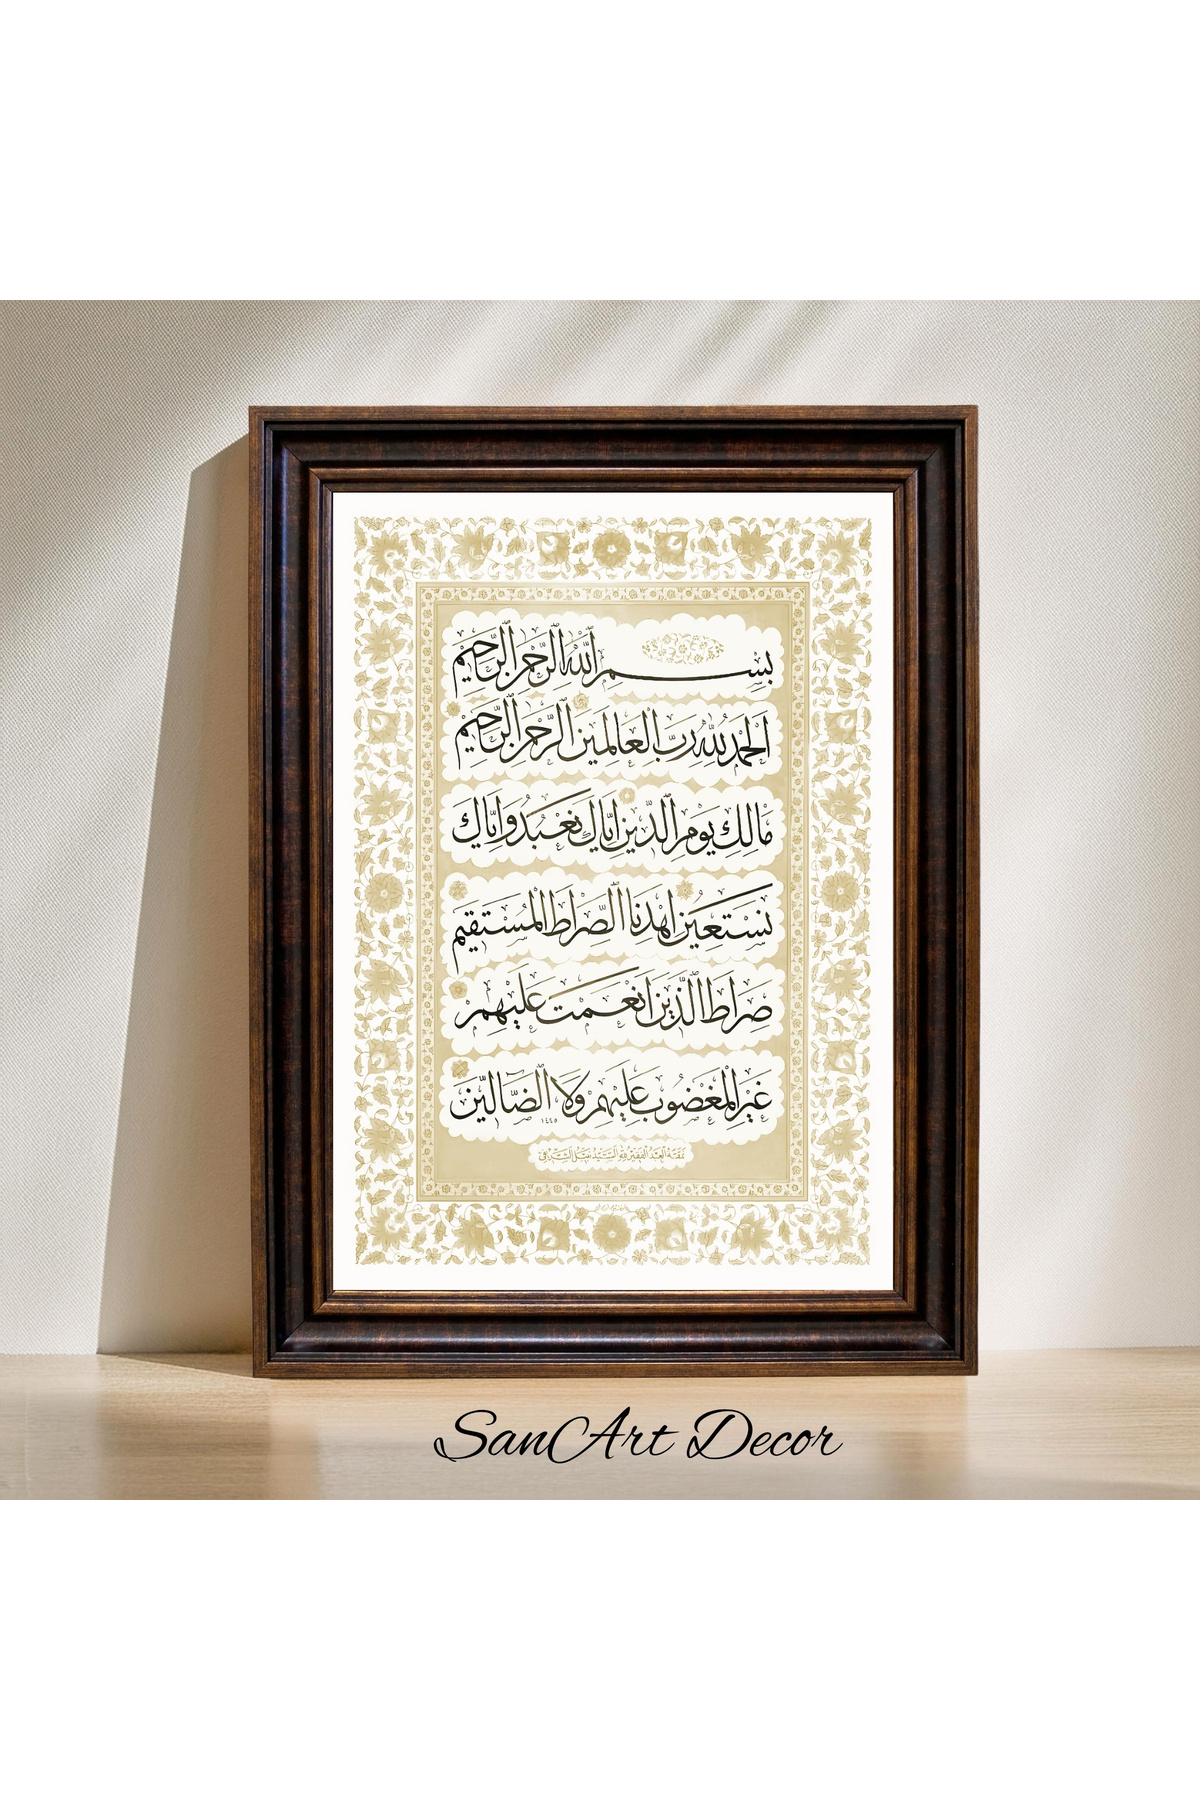 بِسْمِ اللهِ الرَّحْمٰنِ الرَّحِيمِ
اَلْحَمْدُ لِلّٰهِ رَبِّ الْعَالَمِينَ الرَّحْمٰنِ الرَّحِيمِ
مَالِكِ يَوْمِ الدِّينِ اِيَّاكَ نَعْبُدُ وَاِيَّاكَ
نَسْتَعِينُ اِهْدِنَا الصِّرَاطَ الْمُسْتَقِيمَ
صِرَاطَ الَّذِينَ اَنْعَمْتَ عَلَيْهِمْ
غَيْرِ الْمَغْضُوبِ عَلَيْهِمْ وَلَا الضَّالِّينَ
١٤٤٥
SanArt Decor